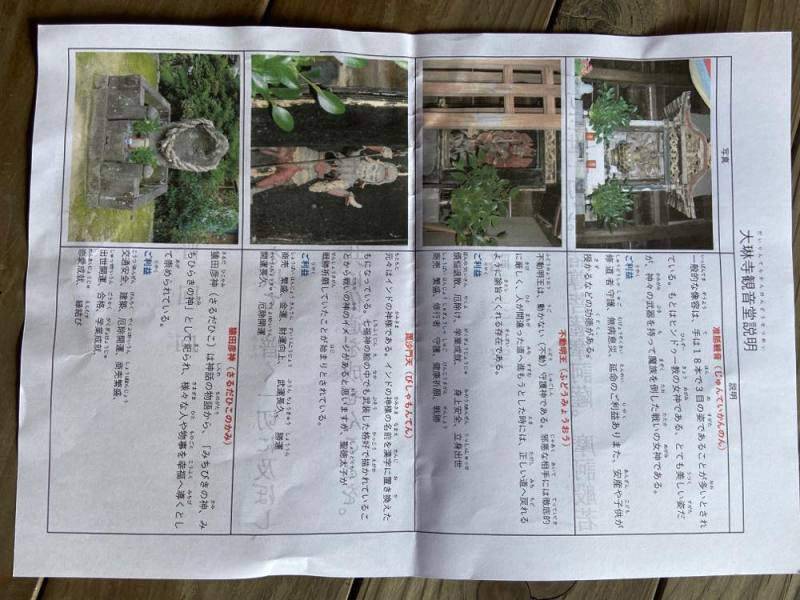 大琳寺観音堂説明
写真
説明
准胝観音（じゅんていかんのん）
一般的な像容は、手は１８本で３目の姿であることが多いとされ
ている。もとはヒンドゥー教の女神である、とても美しい姿だ
が、神々の武器を持って魔族を倒した戦いの女神である。
ご利益
修道者守護、無病息災、延命のご利益ありまた、安産や子供が
授かるなどの功徳がある。
不動明王（ふどうみょうおう）
不動明王は、動かない（不動）守護神である。邪悪な相手には徹底的
に厳しく、人が間違った道へ進もうとした時には、正しい道へ戻れる
ように諭すてくれる存在である。
ご利益
煩悩退散、厄除け、学業成就、身体安全、立身出世
商売繁盛、修行者守護、健康祈願、戦勝
毘沙門天（びしゃもんてん）
元々はインドの神様である。インドの神様の名前を漢字に置き換えた
もになっている。七福神の絵の中でも武装した格好で描かれているこ
とから戦いの神のイメージがあると思いますが、聖徳太子が
戦勝祈願していたことが始まりとされている。
ご利益
商売繁盛、金運、財運向上、武運長久、勝運
開運長久、厄除開運
猿田彦神（さるだひこのかみ）
猿田彦神（さるだひこ）は神話の物語から、「みちびきの神、み
ちひらきの神」として祀られ、様々な人や物事を幸福へ導くとし
て崇められている。
ご利益
交通安全、建築、厄除開運、商売繁盛、
出世開運、合格、学業成就、
恋愛成就、縁結び